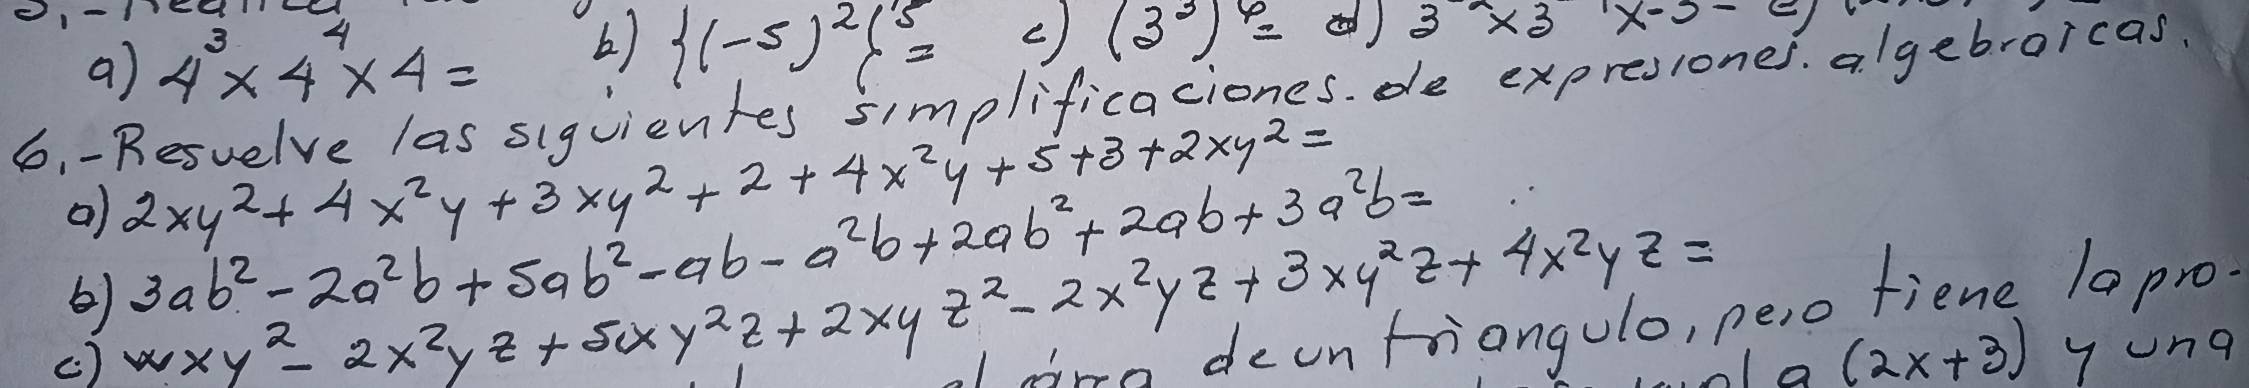 a) 4³ x 4⁴ x 4 = b) {(-5)²{⁵ = c) (3³)⁶ = d) 3 x 3
6.- Resuelve las siguientes simplificaciones. de expresiones. algebraicas.
a) 2xy² + 4x²y + 3xy² + 2 + 4x²y + 5 + 3 + 2xy² =
b) 3ab² - 2a²b + 5ab² - ab - a²b + 2ab² + 2ab + 3a²b =
c) wxy² - 2x²yz + 5xy²z + 2xyz² - 2x²yz + 3xy²z + 4x²yz =
de un triangulo, pero tiene la pro-
(2x+3) y una